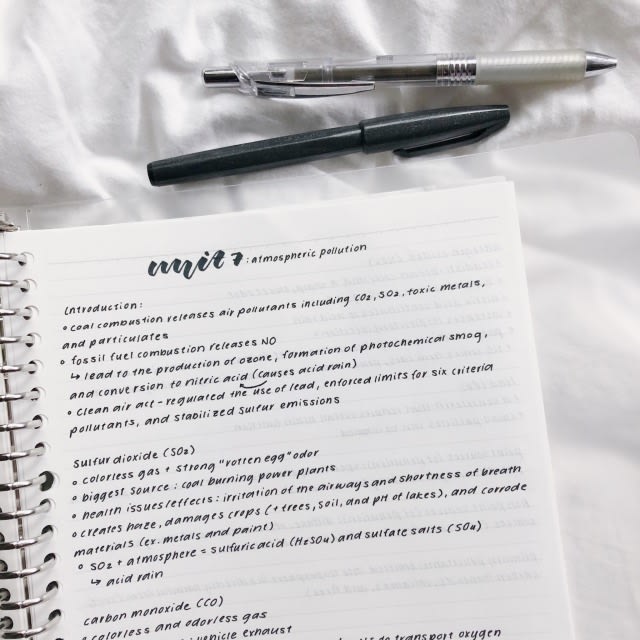 unit 7: atmospheric pollution
Introduction:
• coal combustion releases air pollutants including CO2, SO2, toxic metals,
and particulates
• fossil fuel combustion releases NO
↳ lead to the production of ozone, formation of photochemical smog,
and conversion to nitric acid (causes acid rain)
• Clean air act - regulated the use of lead, enforced limits for six criteria
pollutants, and stabilized sulfur emissions
Sulfur dioxide (SO2)
• colorless gas + strong "rotten egg" odor
• biggest source: coal burning power plants
• health issues/effects: irritation of the airways and shortness of breath
• creates haze, damages crops (+ trees, soil, and pH of lakes), and corrode
materials (ex. metals and paint)
• SO2 + atmosphere = sulfuric acid (H2SO4) and sulfate salts (SO4)
↳ acid rain
carbon monoxide (CO)
• colorless and odorless gas
vehicle exhaust
to transport oxygen